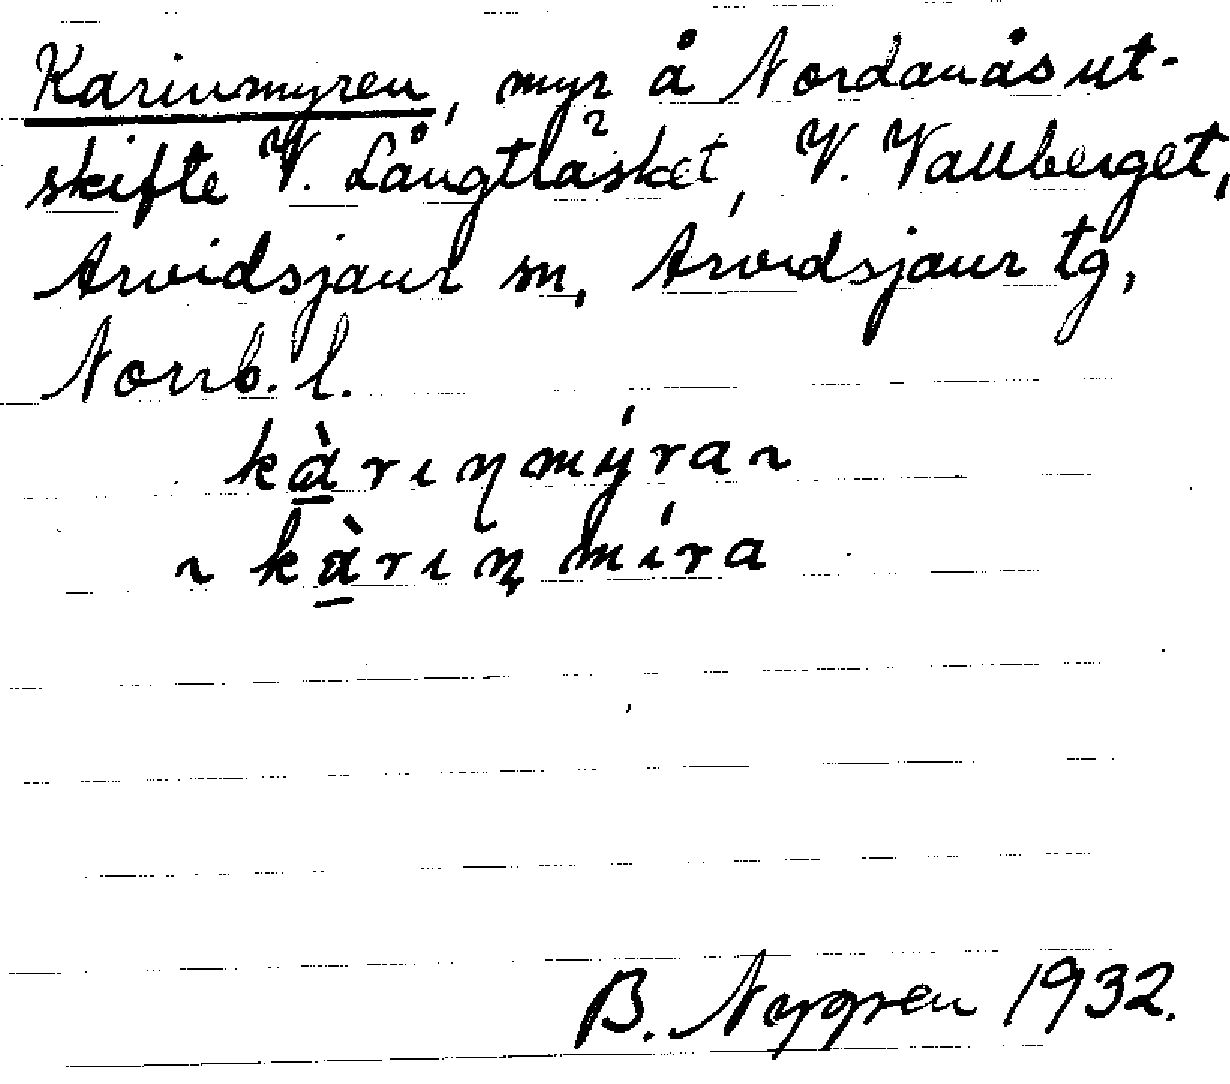 Karinmyren, myr å Nordanås ut-
skifte V. Långträsket, V. Vallberget,
Arvidsjaur sn, Arvidsjaur tg,
Norrb. l.
kàrıŋmýra ~
~ kàrıņmíra
B. Nygren 1932.